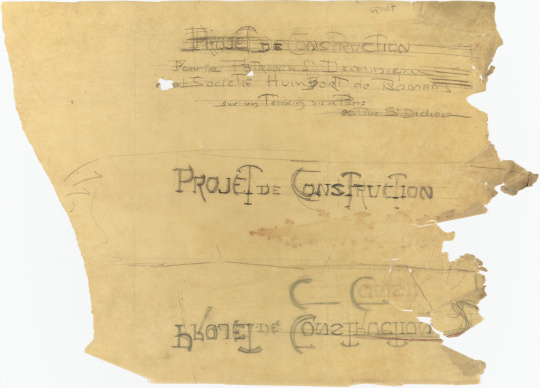 PROJET DE CONSTRUCTION
Pour le St Dominique
et Société Humbert de Romans
sur un Terrain sis à Paris
rue St Didier
PROJÉT DE CONSTRUCTION
C CONS
PROJÉT DE CONSTRUCTION